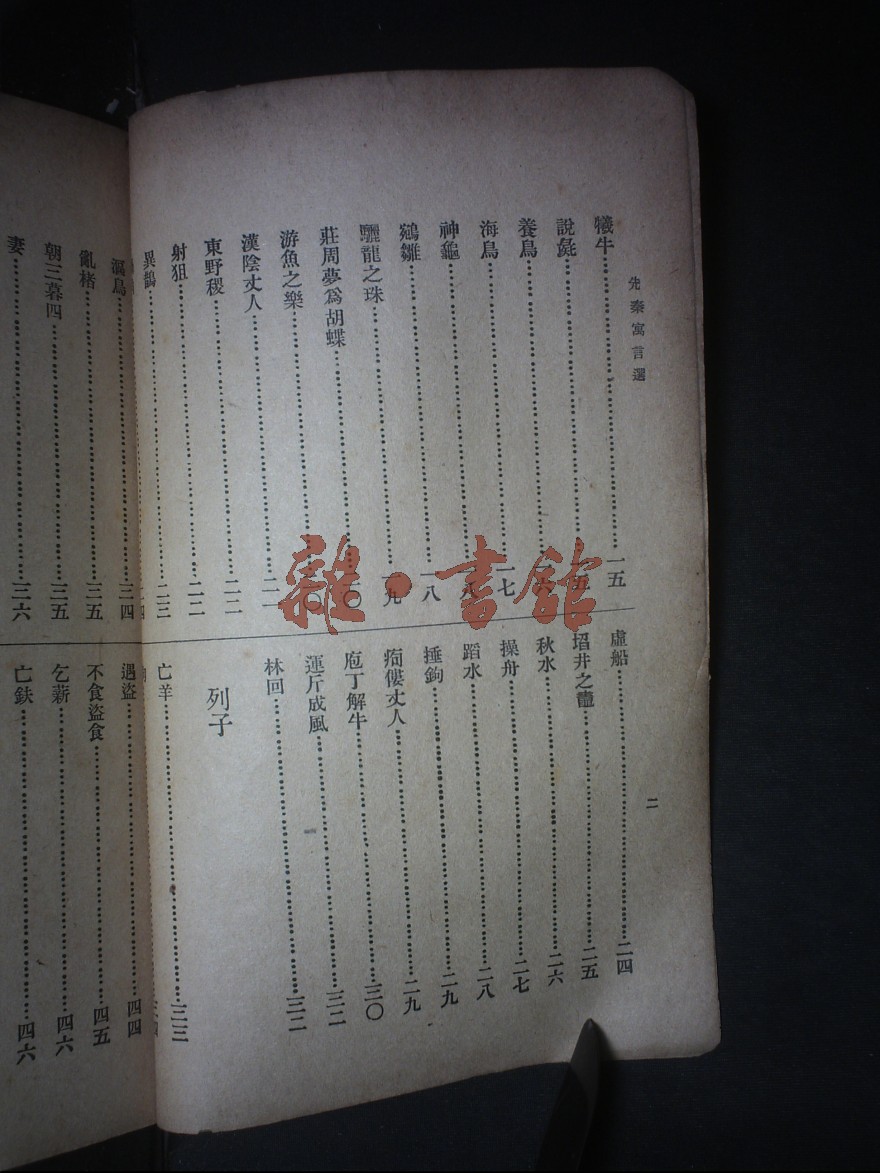 先秦寓言選
犧牛……一五
說彘……一五
養鳥……一六
海鳥……一七
神龜……一八
鵷雛……一八
驪龍之珠……一九
莊周夢爲胡蝶……二〇
游魚之樂……二〇
漢陰丈人……二一
東野稷……二二
射狙……二二
異鵲……二三
虛船……二四
埳井之鼃……二五
秋水……二六
操舟……二七
蹈水……二八
捶鉤……二九
痀僂丈人……二九
庖丁解牛……三〇
運斤成風……三二
林回……三二
列子
亡羊……三三
二
漚鳥……三四
亂楮……三五
朝三暮四……三五
妻……三六
遇盜……四四
不食盜食……四五
乞薪……四六
亡鈇……四六
雜·書館